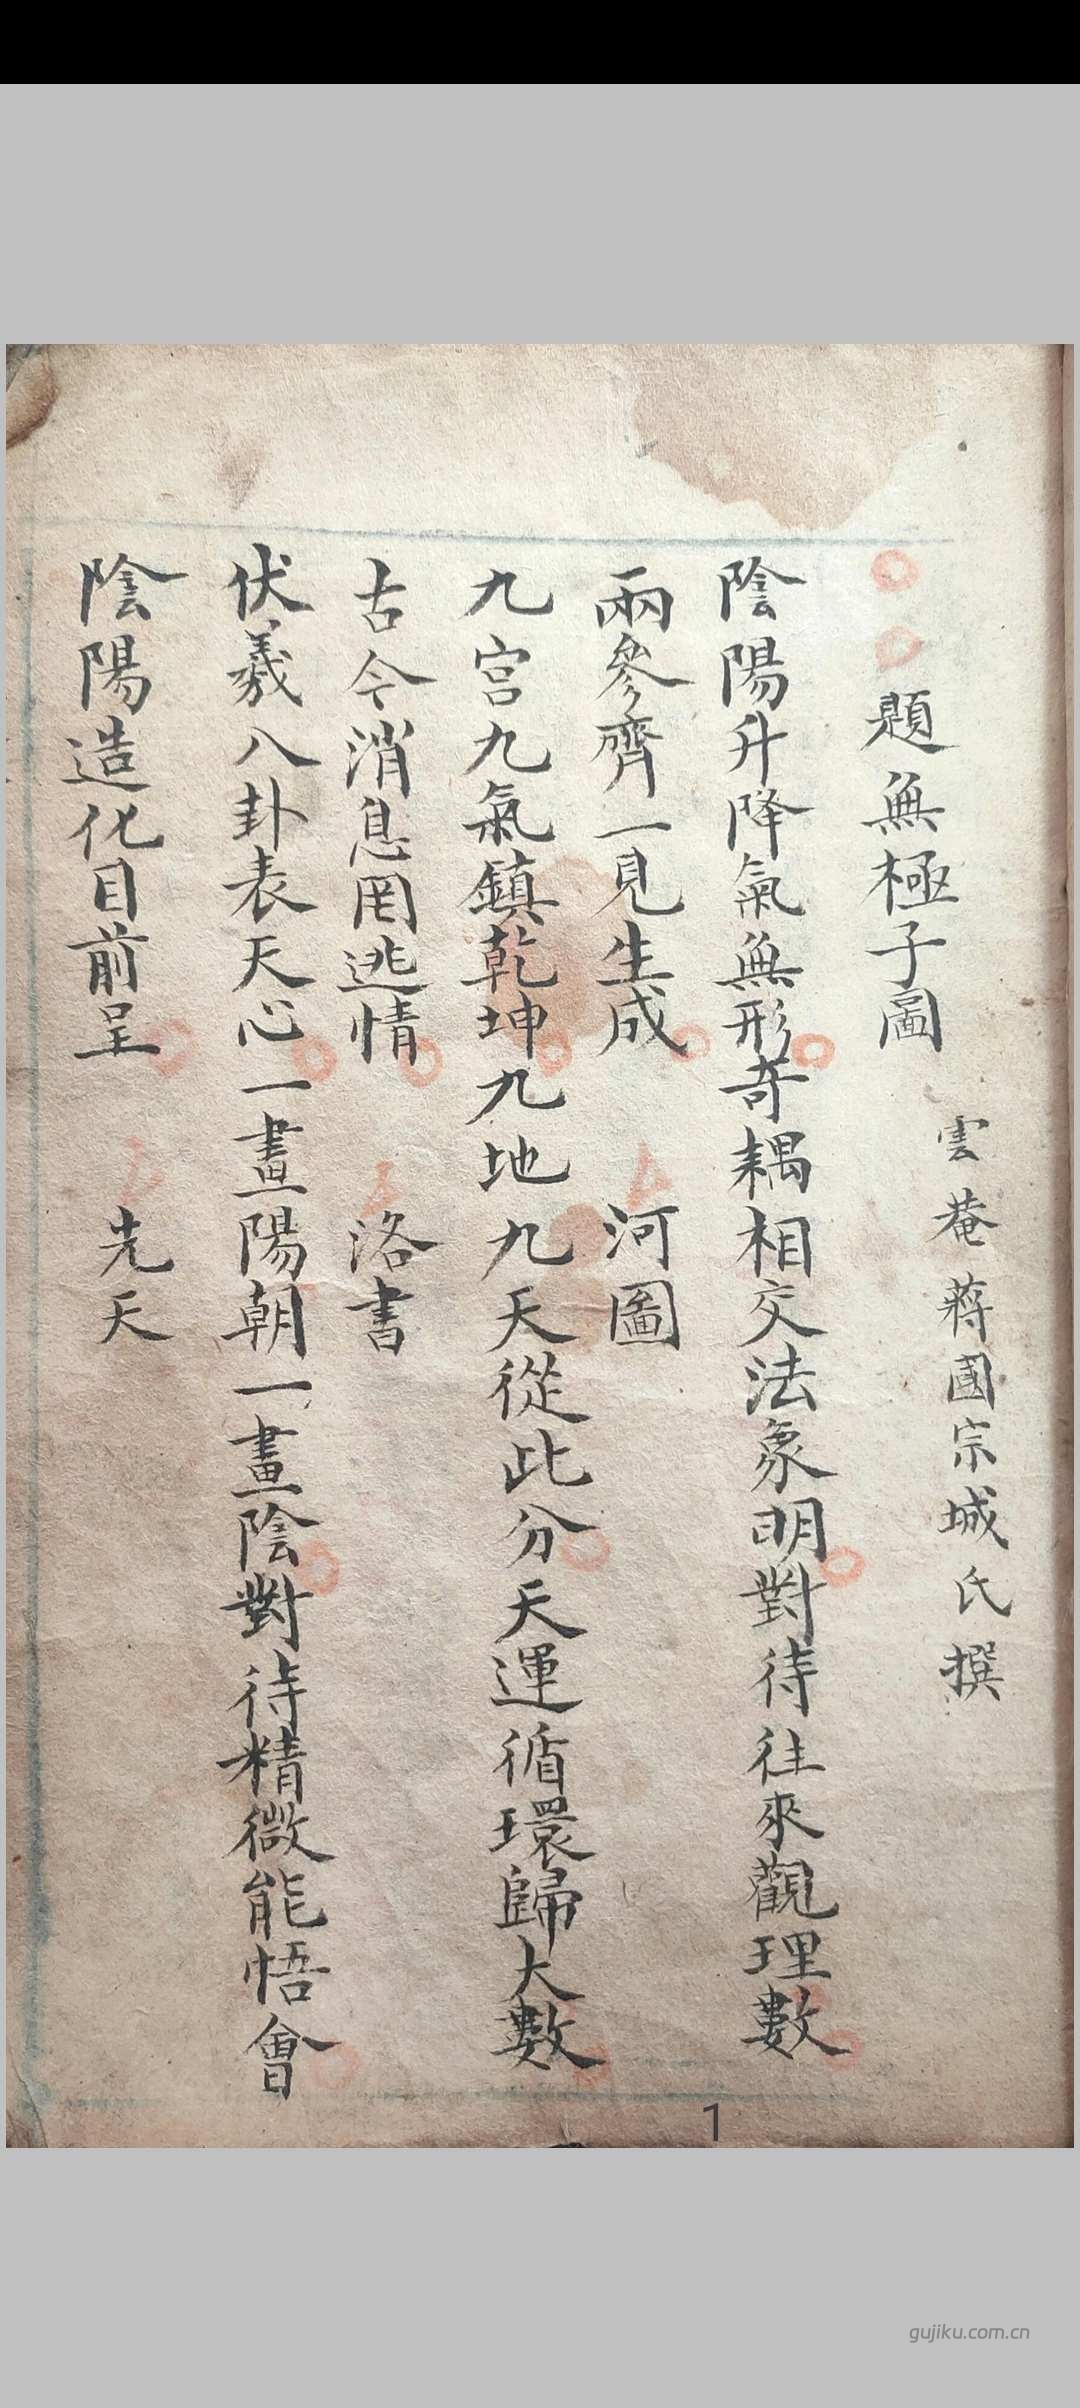 題無極子圖
雲菴蔣國宗城氏撰
陰陽升降氣無形奇耦相交法象明對待往來觀理數
兩參齊一見生成 河圖
九宮九氣鎮乾坤九地九天從此分天運循環歸大數
古今消息罔逃情 洛書
伏羲八卦表天心一畫陽朝一畫陰對待精微能悟會
陰陽造化目前呈 先天
1
gujiku.com.cn